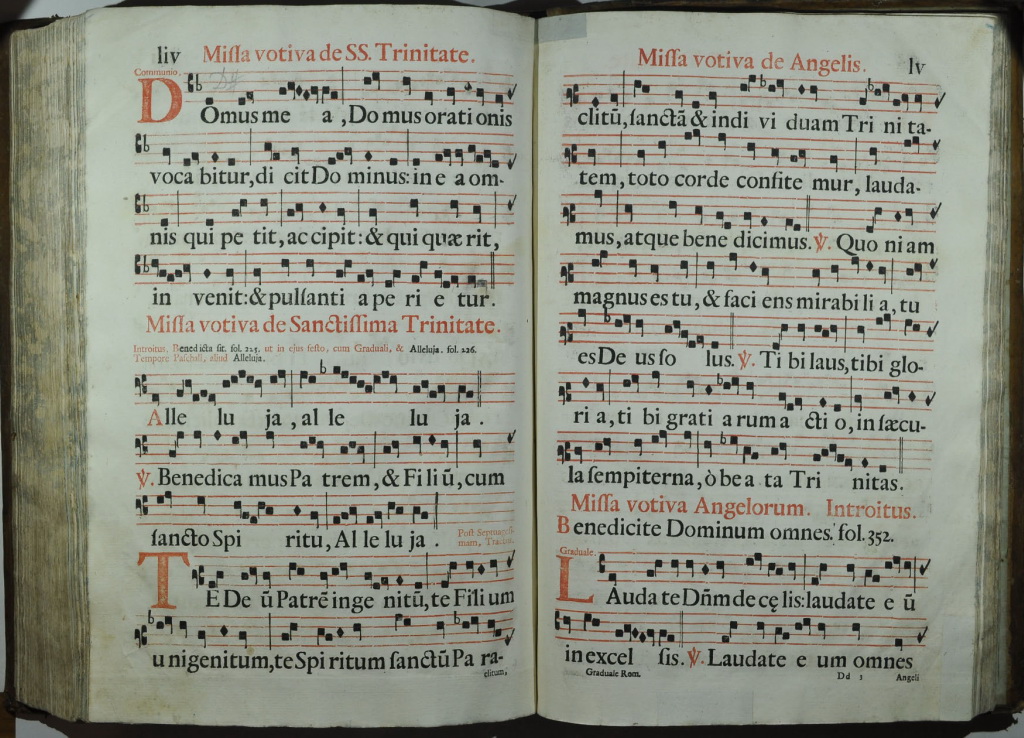 liv Miſſa votiva de SS. Trinitate.
Communio.
DOmus me a, Domus orationis
vocabitur, dicit Dominus: in ea om-
nis qui petit, accipit: & qui quærit,
invenit: & pulſanti aperietur.
Miſſa votiva de Sanctiſſima Trinitate.
Introitus. Benedicta ſit. fol. 225. ut in ejus feſto, cum Graduali, & Alleluja. fol. 226.
Tempore Paſchali, aliud Alleluja.
Alleluja, alleluja.
℣. Benedicamus Patrem, & Filiū, cum
ſancto Spiritu, Alleluja.
Poſt Septuageſi-
mam,
TE Deū Patrē ingenitū, te Filium
unigenitum, te Spiritum ſanctū Para-
clitum,
Miſſa votiva de Angelis. lv
clitū, ſanctā & individuam Trinita-
tem, toto corde confitemur, lauda-
mus, atque benedicimus. ℣. Quoniam
magnus es tu, & faciens mirabilia, tu
es Deus ſolus. ℣. Tibi laus, tibi glo-
ria, tibi gratiarum actio, in ſæcu-
la ſempiterna, ò beata Trinitas.
Miſſa votiva Angelorum. Introitus.
Benedicite Dominum omnes. fol. 352.
Graduale.
LAudate Dñm de cęlis: laudate eū
in excelſis. ℣. Laudate eum omnes
Graduale Rom. Dd 2 Angeli